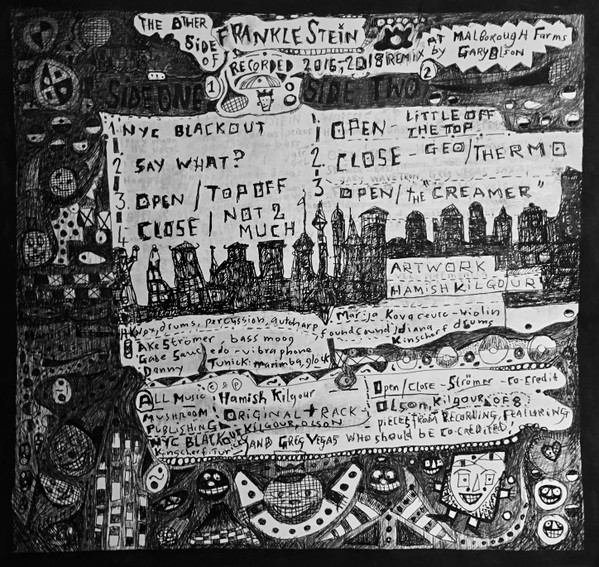 THE OTHER
SIDE
OF
FRANKLESTEIN
RECORDED 2016, 2018 REMIX
AT MALBOROUGH FARMS
by GARY OLSON
SIDE ONE 1
1 NYC BLACKOUT
2 SAY WHAT?
3. OPEN / TOP OFF
4. CLOSE / NOT 2
MUCH
SIDE TWO 2
1 OPEN - LITTLE OFF
THE TOP
2. CLOSE - GEO/THERMO
3 OPEN / the "CREAMER"
ARTWORK
HAMISH KILGOUR
drums, percussion, autoharp
AKE Strömer, bass moog
Gabe Saucedo - vibraphone
Danny Tunick: marimba, glock
Marija Kovacevic - violin
found sound / diana
Kinscherf drums
ALL Music © ℗ Hamish Kilgour
MUSHROOM
PUBLISHING
ORIGINAL TRACK -
NYC BLACKOUT KILGOUR, OLSON
Kinscherf, Tun
AND GREG VEGAS WHO should BE CO-CREDITED!
Open / Close - Strömer - co-credit
Olson, Kilgour
piece FROM RECORDING, FEATURING